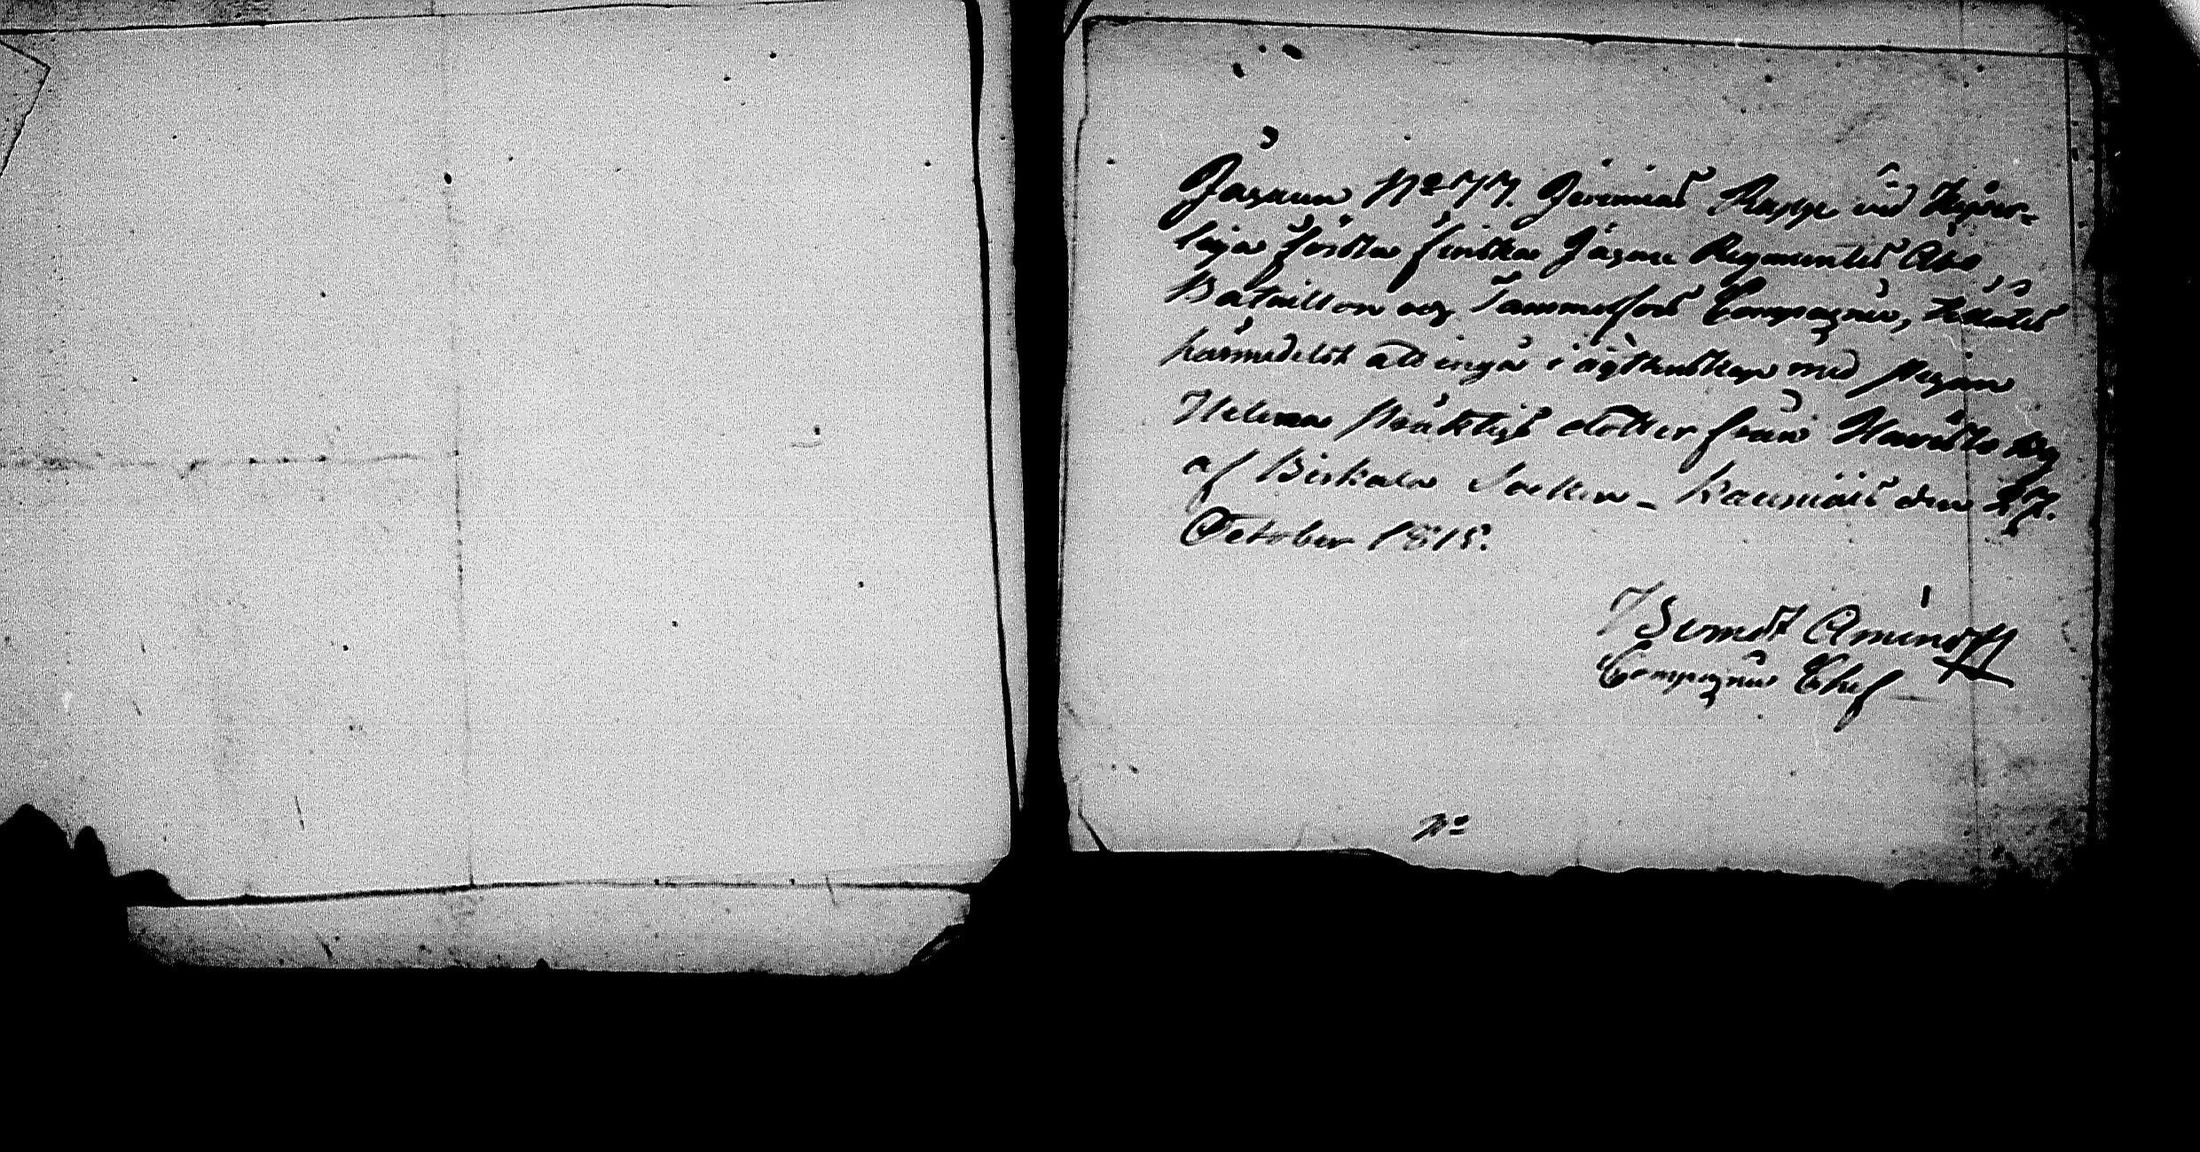 Jägaren No 77. Jeremias Rapp vid Kejser-
liga första finska Jägare Regementets Åbo
Bataillon och Tammerfors Compagnie, tillåtes
härmedelst att ingå i äghtenskap med pigan
Helena dotter från by
af Birkala Socken - den 27.
October 1815.
Berndt Aminoff
Compagnie Chef
No